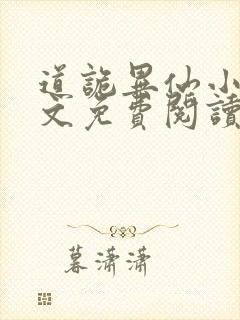 道詭異仙小
文免費閱讀
暮瀟瀟